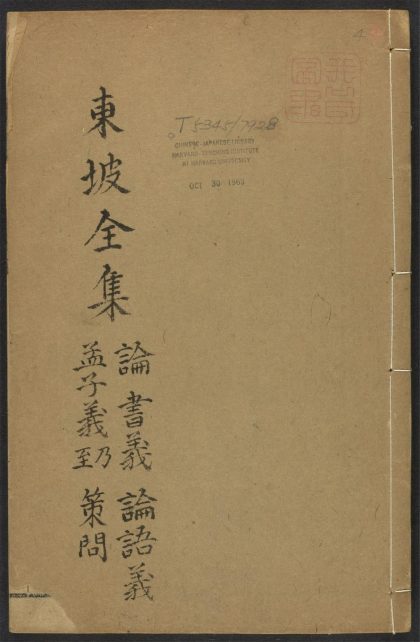 4
T 5345/7928
CHINESE-JAPANESE LIBRARY
HARVARD-YENCHING INSTITUTE
AT HARVARD UNIVERSITY
OCT 30 1960
東坡全集
論 書義 論語義
孟子義 乃至 策問